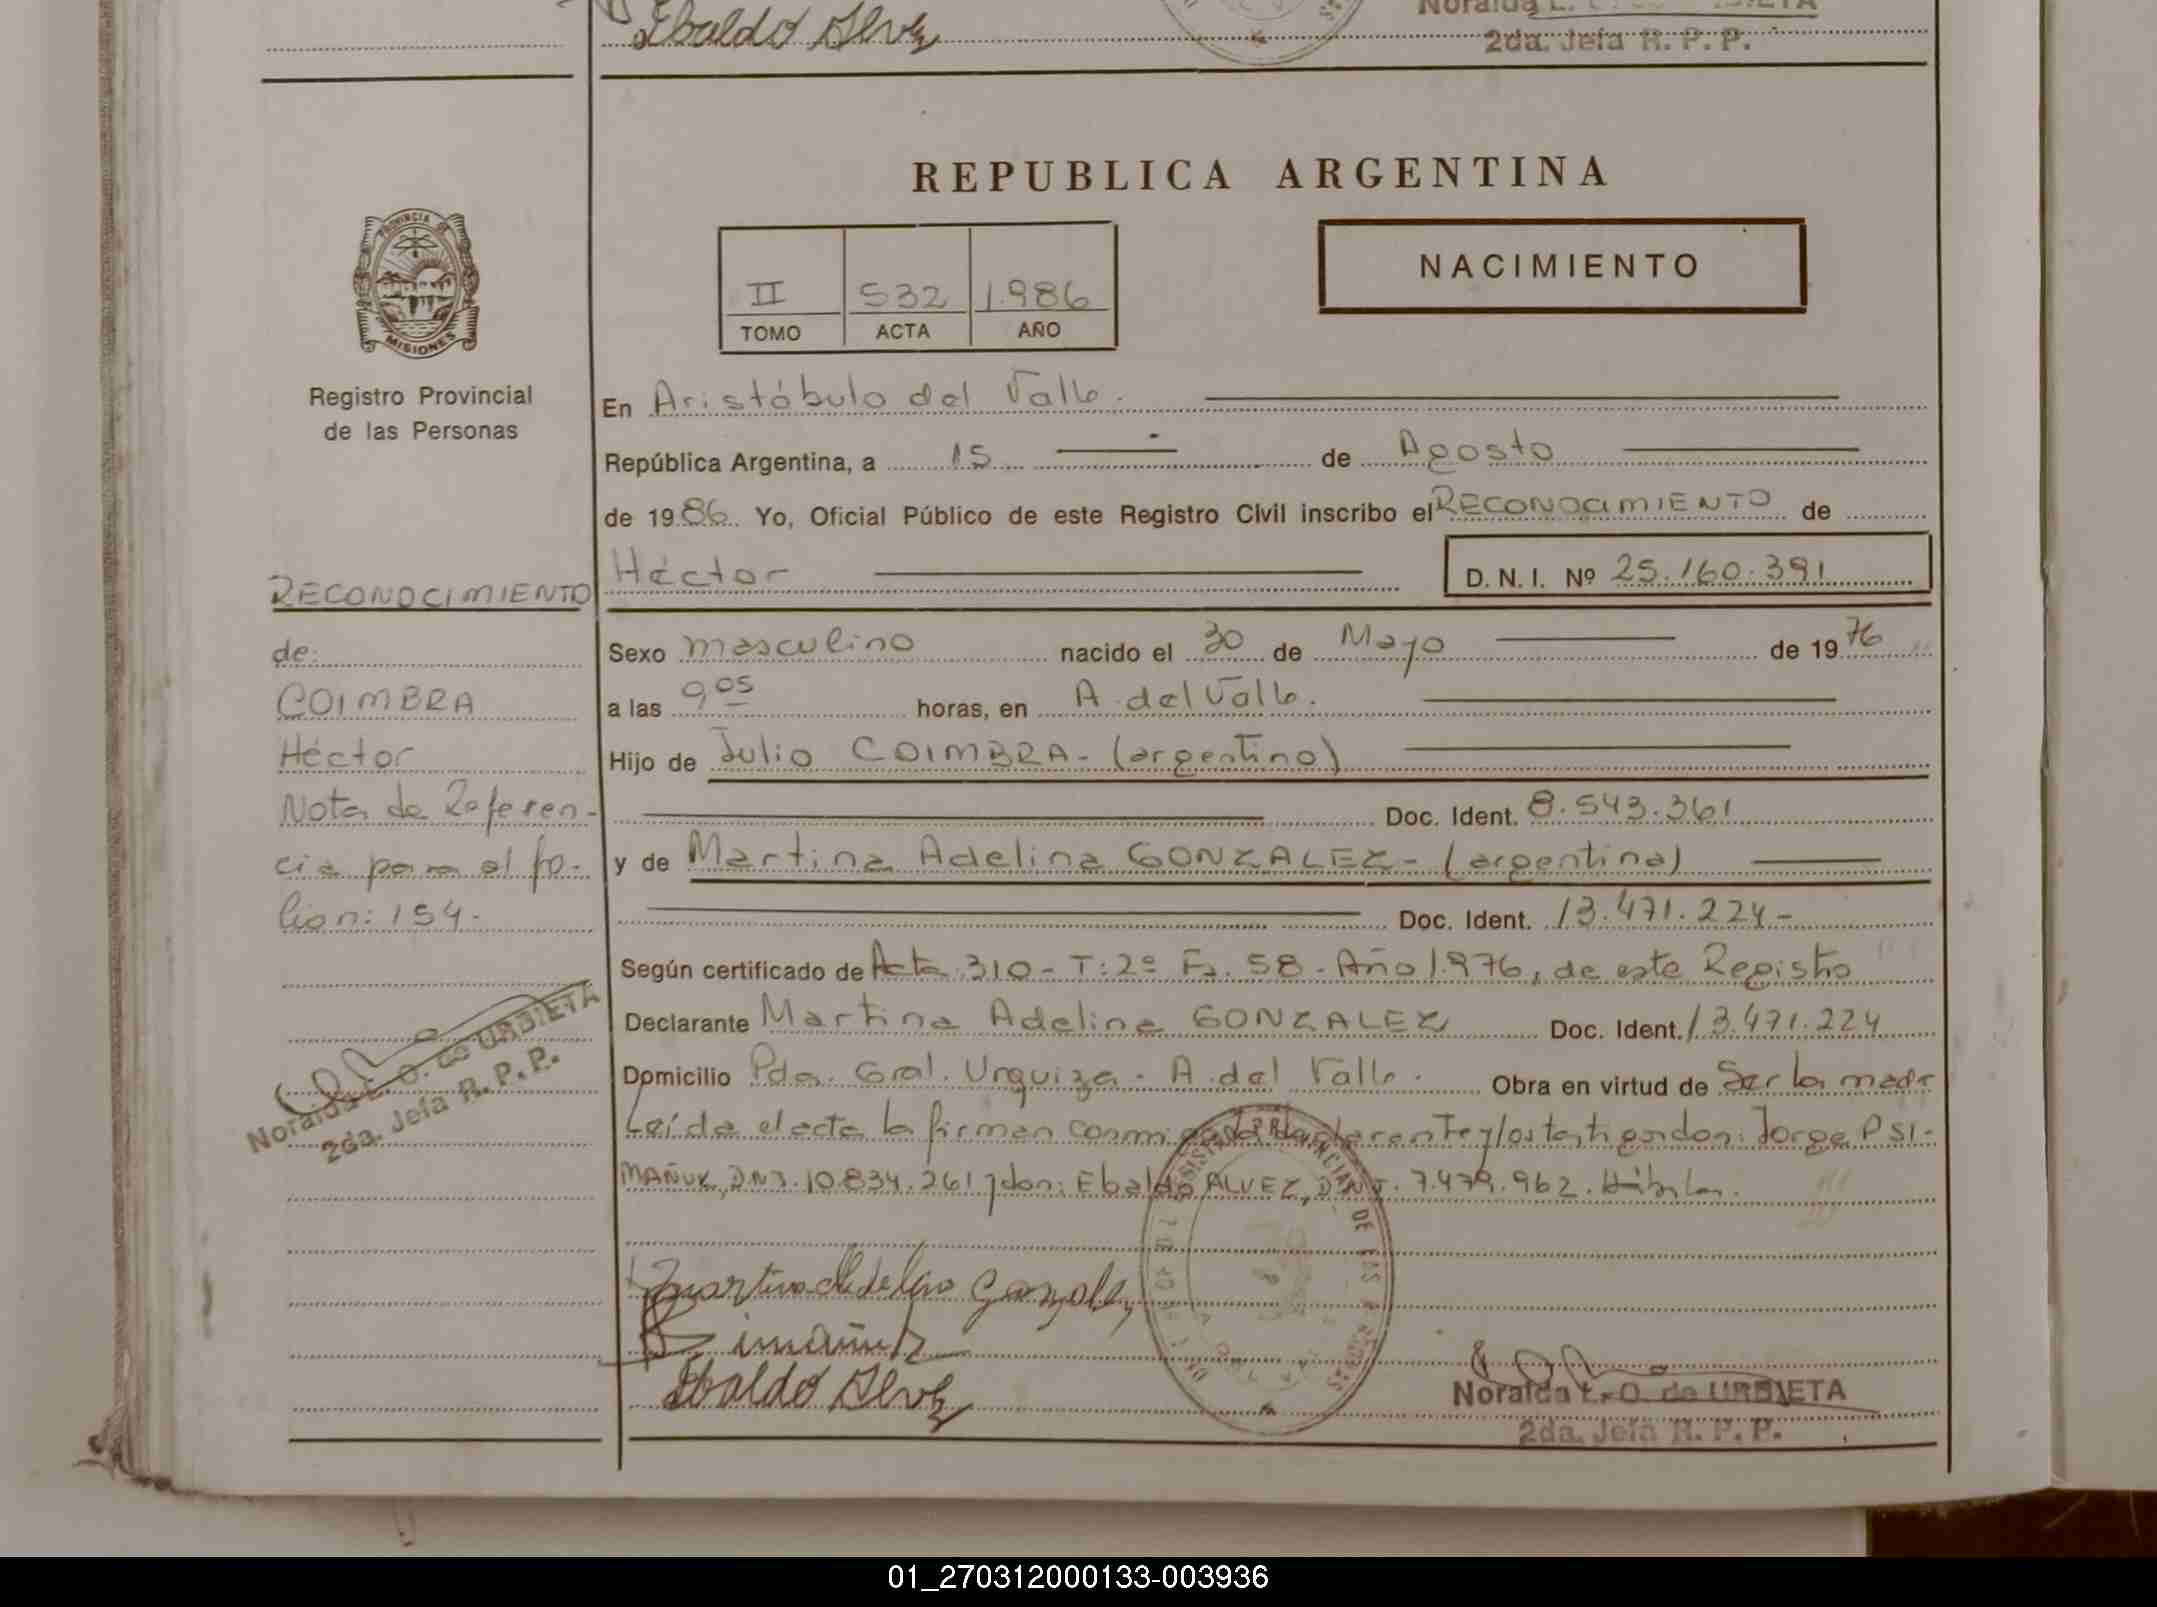 Ebaldo Alvez
2da. Jefa R. P. P.
REPUBLICA ARGENTINA
PROVINCIA DE
MISIONES
Registro Provincial
de las Personas
II 532 1.986
TOMO ACTA AÑO
NACIMIENTO
En Aristóbulo del Valle.
República Argentina, a 15 de Agosto
de 1986. Yo, Oficial Público de este Registro Civil inscribo el RECONOCIMIENTO de
Héctor D. N. I. Nº 25.160.391
RECONOCIMIENTO
de:
COIMBRA
Héctor
Nota de Referen-
cia para el fo-
lion: 154-
Noralda E. O. de URBIETA
2da. Jefa R. P. P.
Sexo masculino nacido el 30 de Mayo de 1976
a las 9 05 horas, en A. del Valle.
Hijo de Julio COIMBRA- (argentino)
Doc. Ident. 8.543.361
y de Martina Adelina GONZALEZ- (argentina)
Doc. Ident. 13.471.224-
Según certificado de Acta 310- T: 2º Fº. 58- Año 1.976, de este Registro
Declarante Martina Adelina GONZALEZ Doc. Ident. 13.471.224
Domicilio Pda. Gral. Urquiza- A. del Valle. Obra en virtud de Ser la madre
Leída el acta la firman conmigo la declarante y los testigos don: Jorge PSI-
MAÑUK, DNI. 10.834.261 y don: Ebaldo ALVEZ, DNI. 7.479.962. Hábiles.
Martina Adelina Gonzalez
Ebaldo Alvez
Noralda E. O. de URBIETA
2da. Jefa R. P. P.
01_270312000133-003936